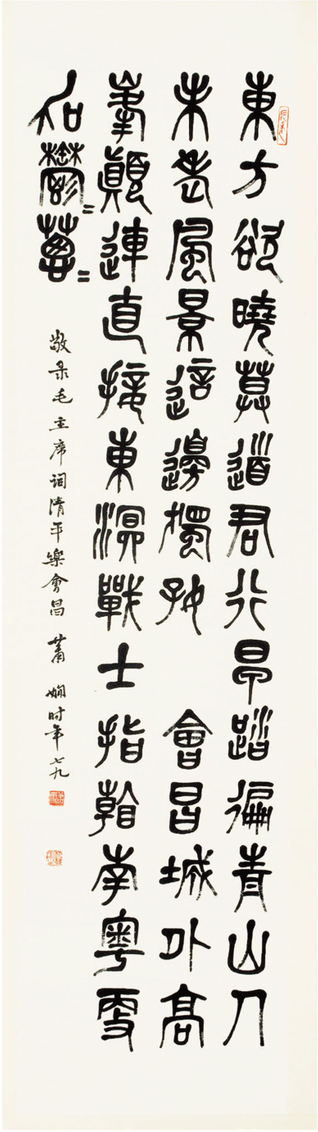 東方欲曉莫道君行早踏徧青山人
未老風景這邊獨好 會昌城外高
峯顛連直接東溟戰士指看南粵更
加鬱=蔥=
敬彔毛主席词清平樂會昌 蕭嫻时年七九